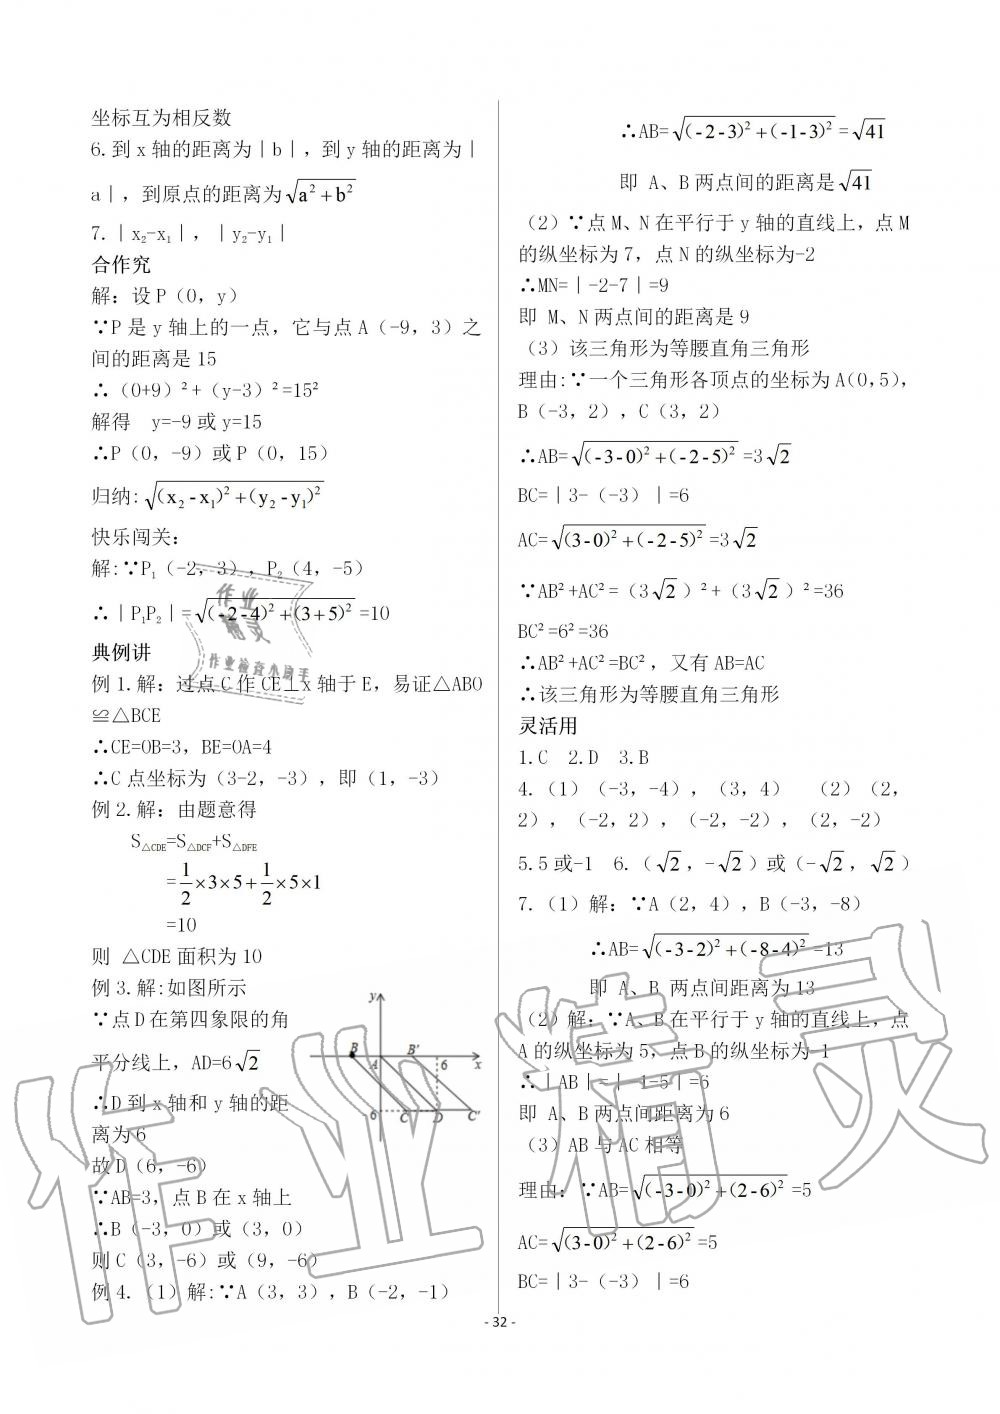 坐标互为相反数
6.到 x 轴的距离为｜b｜，到 y 轴的距离为｜
a｜，到原点的距离为√(a²+b²)
7.｜x₂-x₁｜，｜y₂-y₁｜
合作究
解：设 P（0，y）
∵P 是 y 轴上的一点，它与点 A（-9，3）之
间的距离是 15
∴（0+9）²+（y-3）²=15²
解得　y=-9 或 y=15
∴P（0，-9）或 P（0，15）
归纳：√((x₂-x₁)²+(y₂-y₁)²)
快乐闯关：
解：∵P₁（-2，3），P₂（4，-5）
∴｜P₁P₂｜=√((-2-4)²+(3+5)²)=10
典例讲
例 1.解：过点 C 作 CE⊥x 轴于 E，易证△ABO
≌△BCE
∴CE=OB=3，BE=OA=4
∴C 点坐标为（3-2，-3），即（1，-3）
例 2.解：由题意得
S△CDE=S△DCF+S△DFE
=1/2×3×5+1/2×5×1
=10
则 △CDE 面积为 10
例 3.解：如图所示
∵点 D 在第四象限的角
平分线上，AD=6√2
∴D 到 x 轴和 y 轴的距
离为 6
故 D（6，-6）
∵AB=3，点 B 在 x 轴上
∴B（-3，0）或（3，0）
则 C（3，-6）或（9，-6）
例 4.（1）解：∵A（3，3），B（-2，-1）
y
B A B′ 6 x
6 C D C′
∴AB=√((-2-3)²+(-1-3)²)=√41
即 A、B 两点间的距离是√41
（2）∵点 M、N 在平行于 y 轴的直线上，点 M
的纵坐标为 7，点 N 的纵坐标为-2
∴MN=｜-2-7｜=9
即 M、N 两点间的距离是 9
（3）该三角形为等腰直角三角形
理由：∵一个三角形各顶点的坐标为 A（0，5），
B（-3，2），C（3，2）
∴AB=√((-3-0)²+(-2-5)²)=3√2
BC=｜3-（-3）｜=6
AC=√((3-0)²+(-2-5)²)=3√2
∵AB²+AC²=（3√2）²+（3√2）²=36
BC²=6²=36
∴AB²+AC²=BC²，又有 AB=AC
∴该三角形为等腰直角三角形
灵活用
1.C　2.D　3.B
4.（1）（-3，-4），（3，4）　（2）（2，
2），（-2，2），（-2，-2），（2，-2）
5.5 或-1　6.（√2，-√2）或（-√2，√2）
7.（1）解：∵A（2，4），B（-3，-8）
∴AB=√((-3-2)²+(-8-4)²)=13
即 A、B 两点间距离为 13
（2）解：∵A、B 在平行于 y 轴的直线上，点
A 的纵坐标为 5，点 B 的纵坐标为-1
∴｜AB｜=｜-1-5｜=6
即 A、B 两点间距离为 6
（3）AB 与 AC 相等
理由：∵AB=√((-3-0)²+(2-6)²)=5
AC=√((3-0)²+(2-6)²)=5
BC=｜3-（-3）｜=6
- 32 -
作业
精灵
作业检查小助手
作业精灵